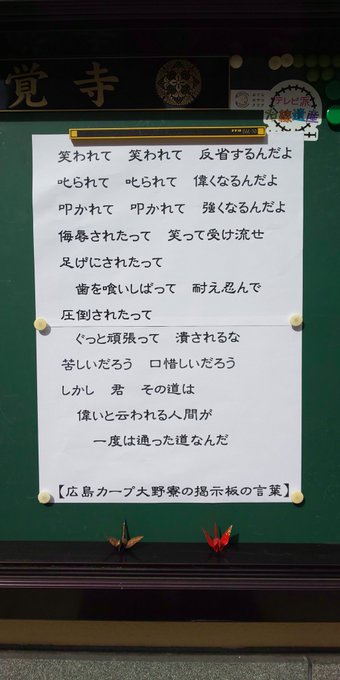 覚寺
テレビ派
沿線遺産
笑われて　笑われて　反省するんだよ
叱られて　叱られて　偉くなるんだよ
叩かれて　叩かれて　強くなるんだよ
侮辱されたって　笑って受け流せ
足げにされたって
歯を喰いしばって　耐え忍んで
圧倒されたって
ぐっと頑張って　潰されるな
苦しいだろう　口惜しいだろう
しかし　君　その道は
偉いと云われる人間が
一度は通った道なんだ
【広島カープ大野寮の掲示板の言葉】